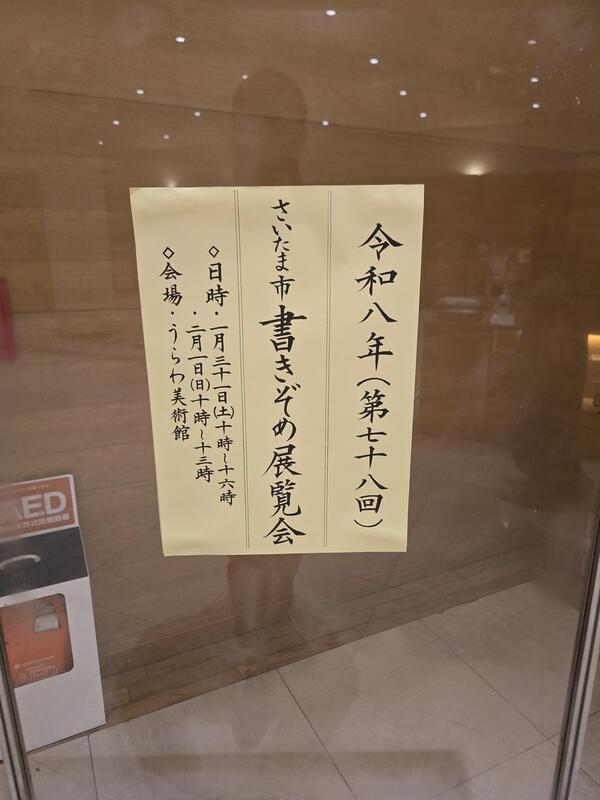 令和八年(第七十八回)
さいたま市書きぞめ展覧会
◇日時・一月三十一日(土)十時~十六時
・二月一日(日)十時~十三時
◇会場・うらわ美術館
AED
AED